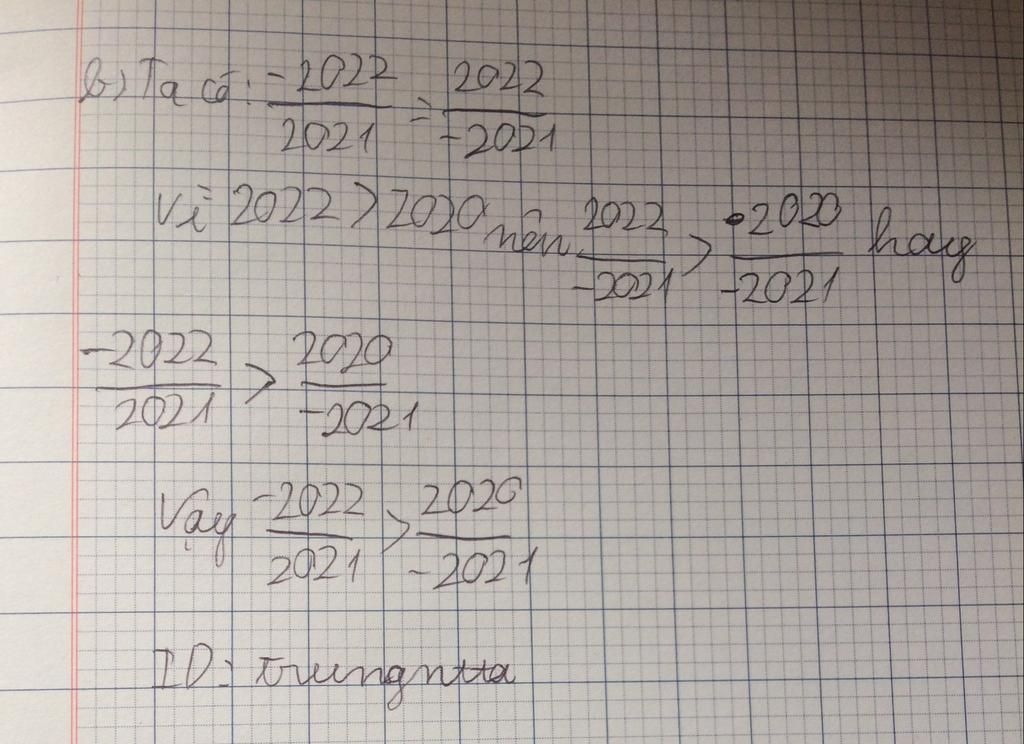 b) Ta có: -2022/2021 = 2022/-2021
Vì 2022 > 2020 nên 2022/-2021 > 2020/-2021 hay
-2022/2021 > 2020/-2021
Vậy -2022/2021 > 2020/-2021
ID: trungntta